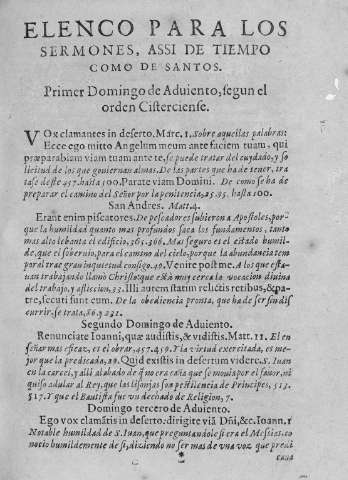 ELENCO PARA LOS
SERMONES, ASSI DE TIEMPO
COMO DE SANTOS.
Primer Domingo de Aduiento, segun el
orden Cisterciense.
VOx clamantes in deserto. Matt. 1. Sobre aquellas palabras:
Ecce ego mitto Angelum meum ante faciem tuam, qui
præparabit viam tuam ante te, se puede tratar del cuydado, y so
licitud de los que gouiernan almas. De las partes que ha de tener, tra
tase desde 457. hasta 500. Parate viam Domini. De como se ha de
preparar el camino del Señor por la penitencia, 25. hasta 100.
San Andres. Matt. 4.
Erant enim piscatores. De pescadores subieron a Apostoles, por-
que la humildad quanto mas profundos saca los fundamentos, tanto
mas alto lebanta el edificio. 365. 366. Mas seguro es el estado humil-
de, que el soberuio, para el camino del cielo, porque la abundancia tem
poral trae gran inquietud consigo. 40. Venite post me. A los que esta-
uan trabajando llamó Christo: que está muy cerca la vocacion diuina
del trabajo, y afliccion, 33. Illi autem statim relictis retibus, & pa-
tre, secuti sunt eum. De la obediencia pronta, que ha de ser sin dis
currir, se trata, 86. y 231.
Segundo Domingo de Aduiento.
Renunciate Ioanni, quæ audistis, & vidistis. Matt. 11. El en
señar mas eficaz, es el obrar, 457. 459. Y la virtud exercitada, es me-
jor que la predicada, 28. Quid existis in desertum videre. S. Iuan
en la carcel, y alli alabado de q̃ no era caña que se mouia por el fauor, ni
quiso adular al Rey, que las lisonjas son pestilencia de Principes, 513.
517. Y que el Bautista fue vn dechado de Religion, 7.
Domingo tercero de Aduiento.
Ego vox clamãtis in deserto: dirigite viã Dñi, &c. Ioann. 1
Notable humildad de S. Iuan, que preguntandole si era el Messias, co
nocio humildemente de si, diziendo no ser mas de vna voz que predi
*